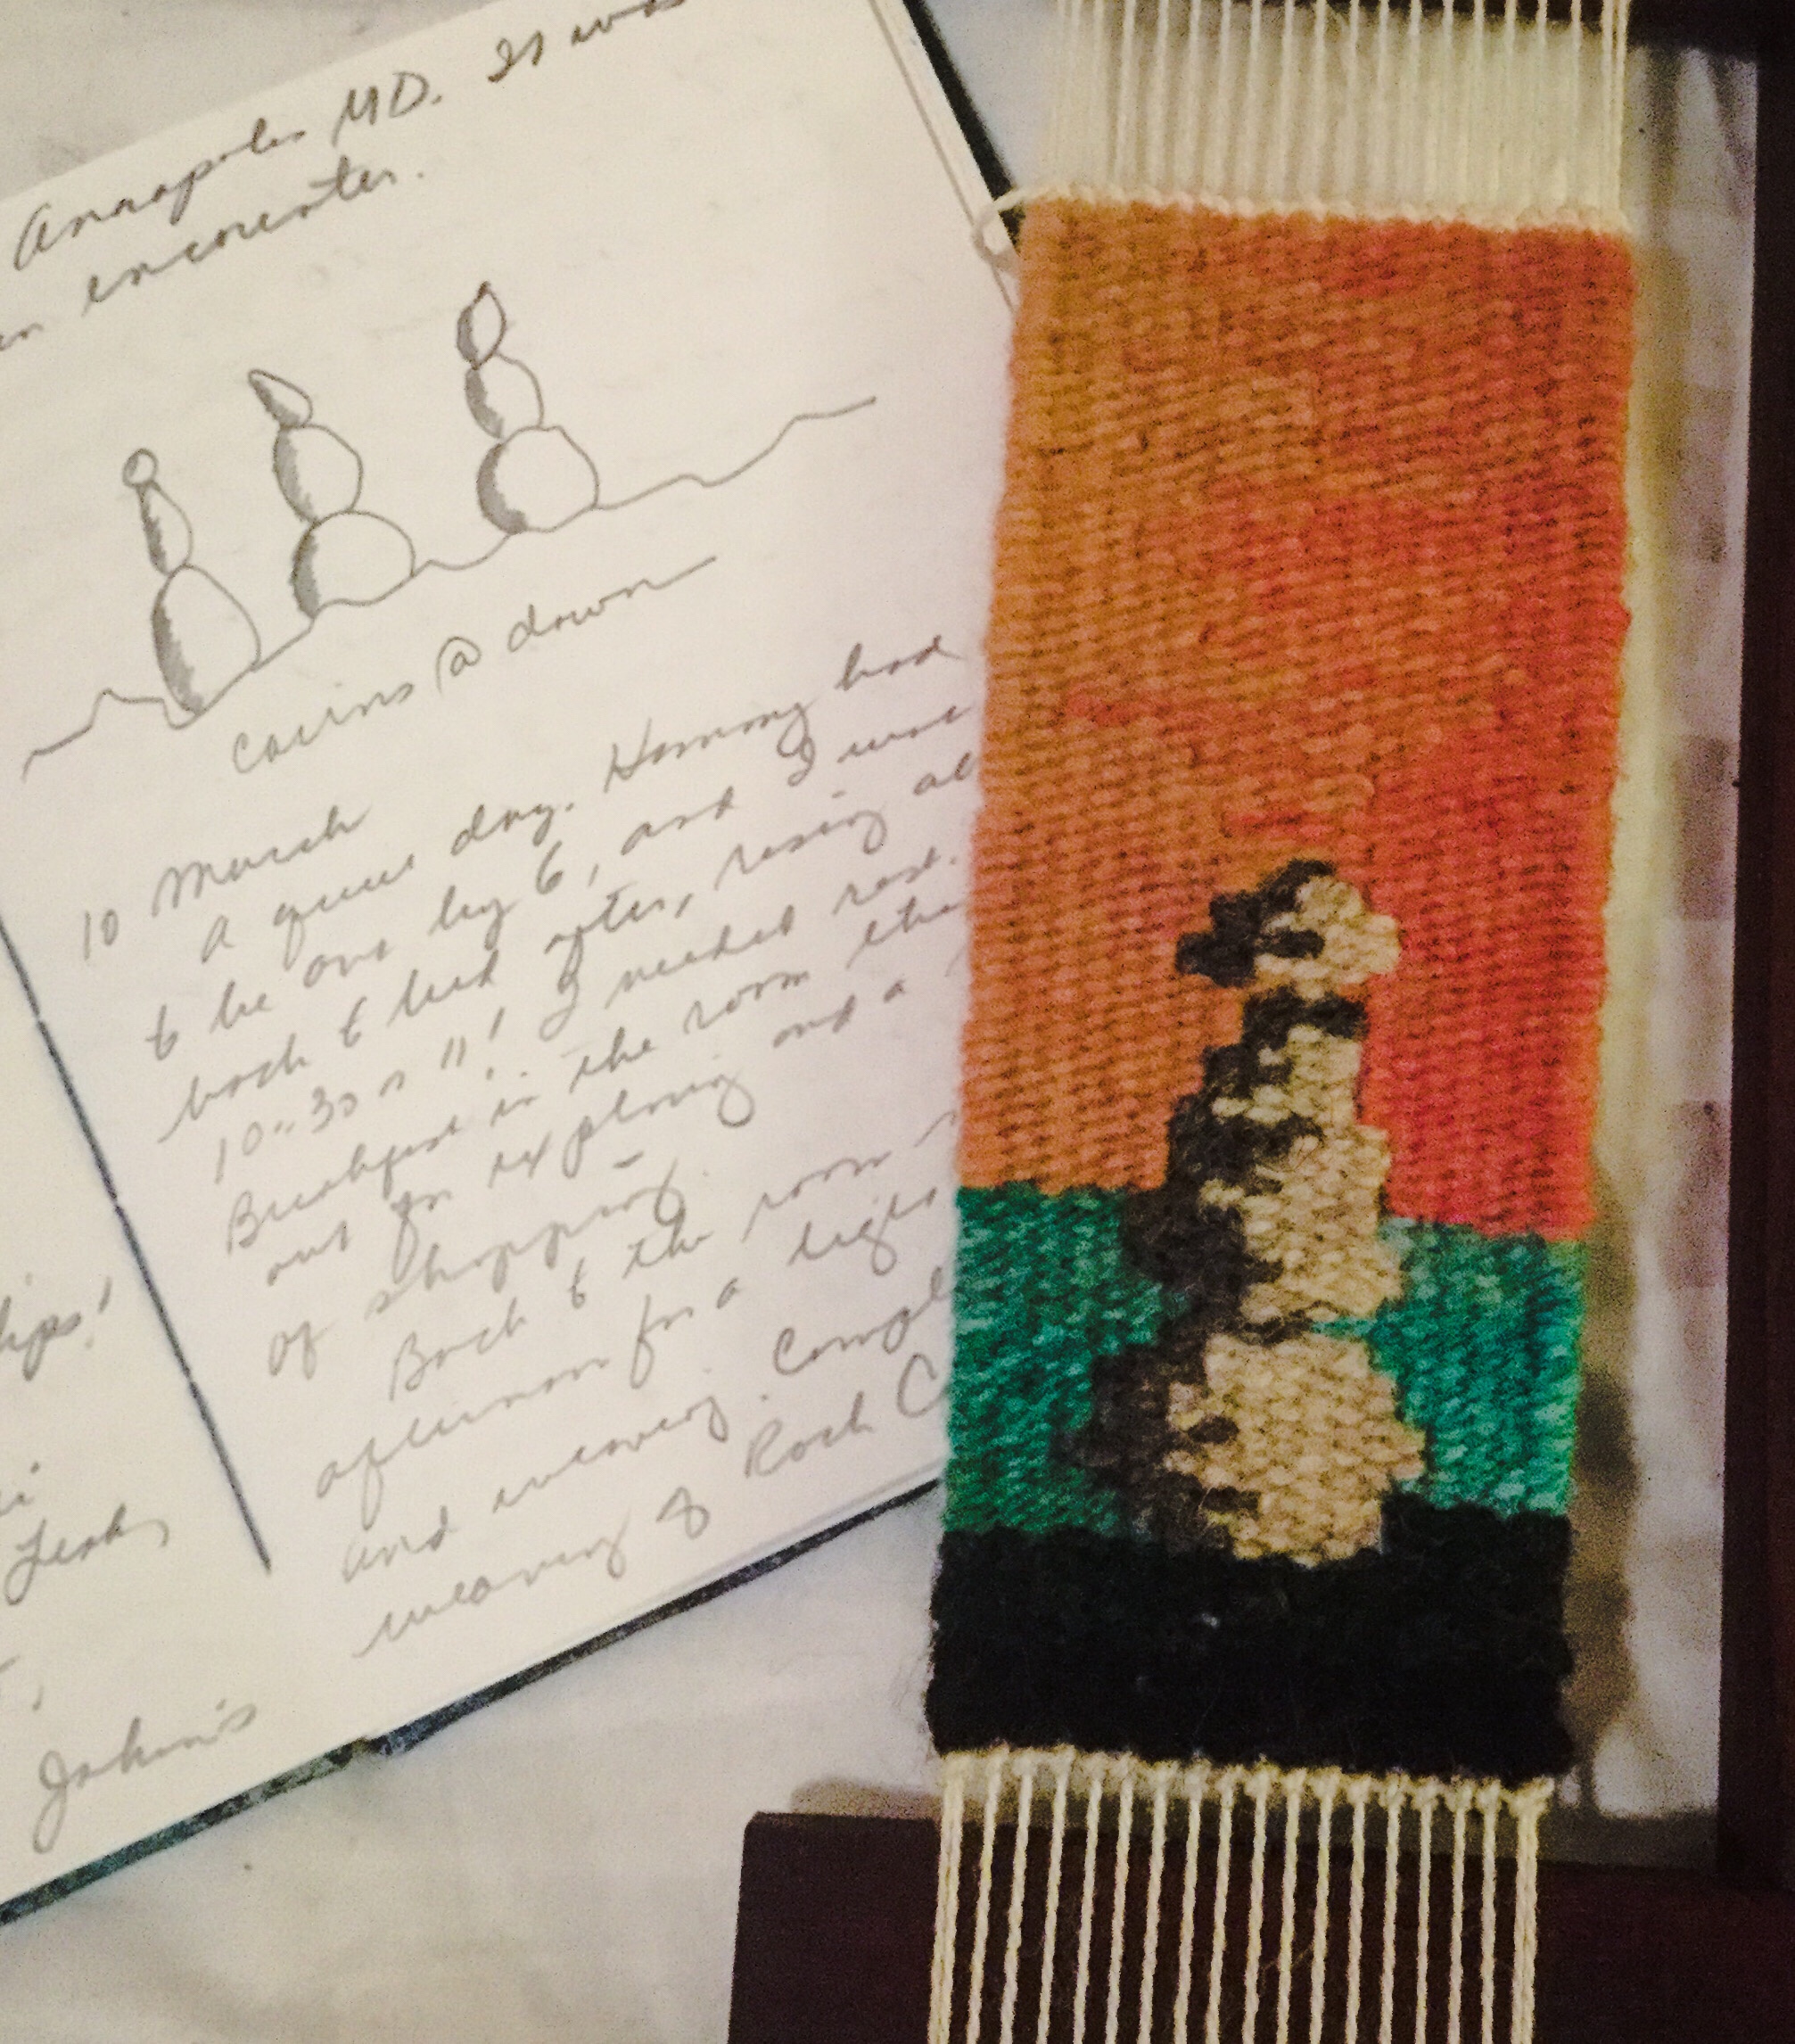 Annapolis MD. It was
an encounter.
Cairns @ dawn
10 March
A quiet day. Hammy had
to be out by 6, and I went
back to bed after, rising at
10:30 or 11! I needed rest.
Breakfast in the room then
out for exploring and a
of shopping.
Back to the room
afternoon for a light
and weaving. Compl
weaving of Rock C
lips!
John's